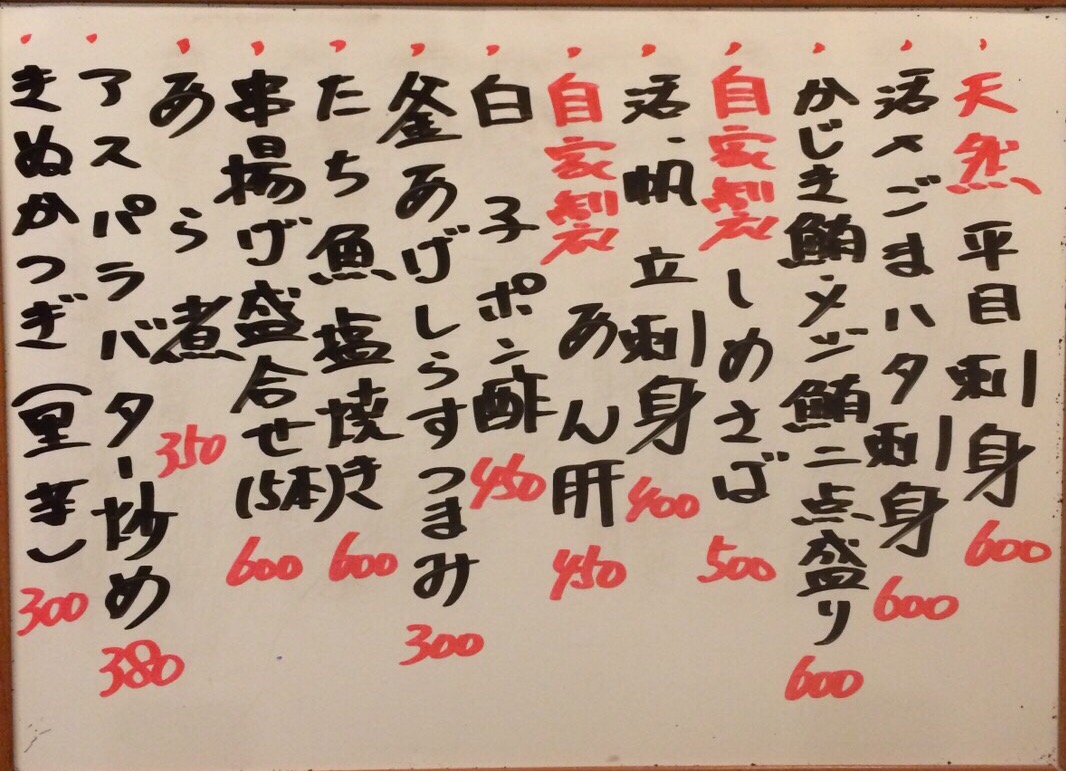 天然平目刺身 600
活〆ごまハタ刺身 600
かじき鮪・メジ鮪二点盛り 600
自家製しめさば 500
活・帆立刺身 400
自家製あん肝 450
白子ポン酢 450
釜あげしらすつまみ 300
たち魚塩焼き 600
串揚げ盛合せ(5本) 600
あら煮 350
アスパラバター炒め 380
きぬかつぎ(里芋) 300